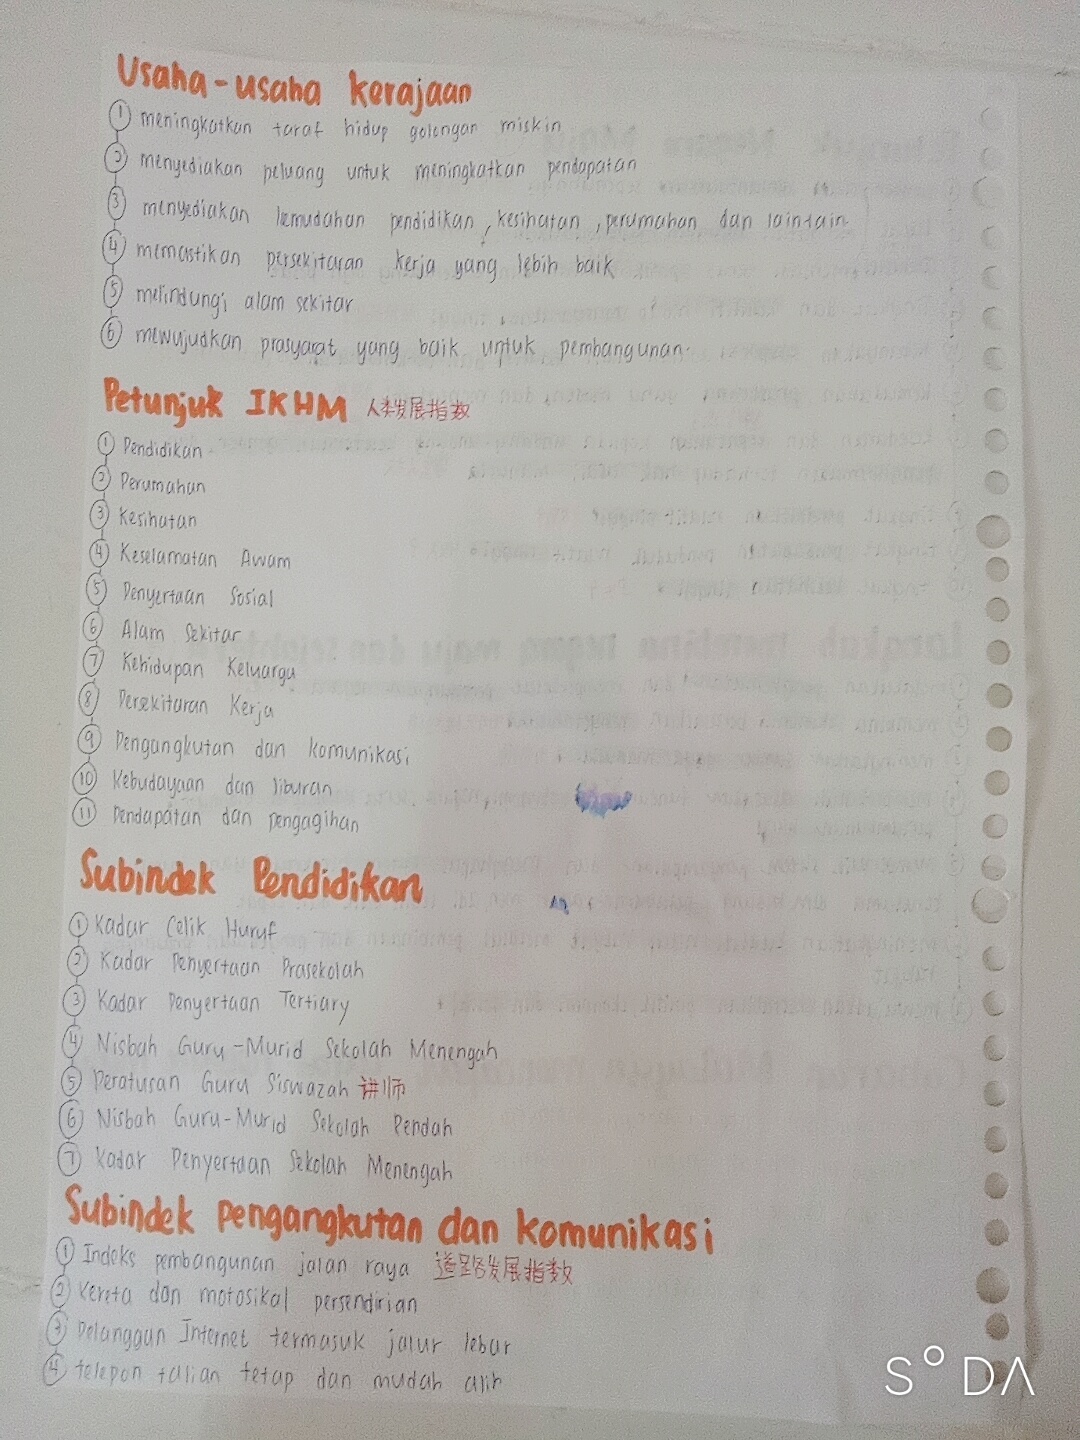 Usaha-usaha kerajaan
① meningkatkan taraf hidup golongan miskin
② menyediakan peluang untuk meningkatkan pendapatan
③ menyediakan kemudahan pendidikan, kesihatan, perumahan dan lain-lain
④ memastikan persekitaran kerja yang lebih baik
⑤ melindungi alam sekitar
⑥ mewujudkan prasyarat yang baik untuk pembangunan.
Petunjuk IKHM 人类发展指数
① Pendidikan
② Perumahan
③ Kesihatan
④ Keselamatan Awam
⑤ Penyertaan Sosial
⑥ Alam Sekitar
⑦ Kehidupan Keluarga
⑧ Persekitaran Kerja
⑨ Pengangkutan dan komunikasi
⑩ Kebudayaan dan liburan
⑪ Pendapatan dan pengagihan
Subindek Pendidikan
① Kadar Celik Huruf
② Kadar Penyertaan Prasekolah
③ Kadar Penyertaan Tertiary
④ Nisbah Guru-Murid Sekolah Menengah
⑤ Peratusan Guru Siswazah 讲师
⑥ Nisbah Guru-Murid Sekolah Rendah
⑦ Kadar Penyertaan Sekolah Menengah
Subindek pengangkutan dan komunikasi
① Indeks pembangunan jalan raya 道路发展指数
② Kereta dan motosikal persendirian
③ Pelanggan Internet termasuk jalur lebar
④ telepon talian tetap dan mudah alih
SODA